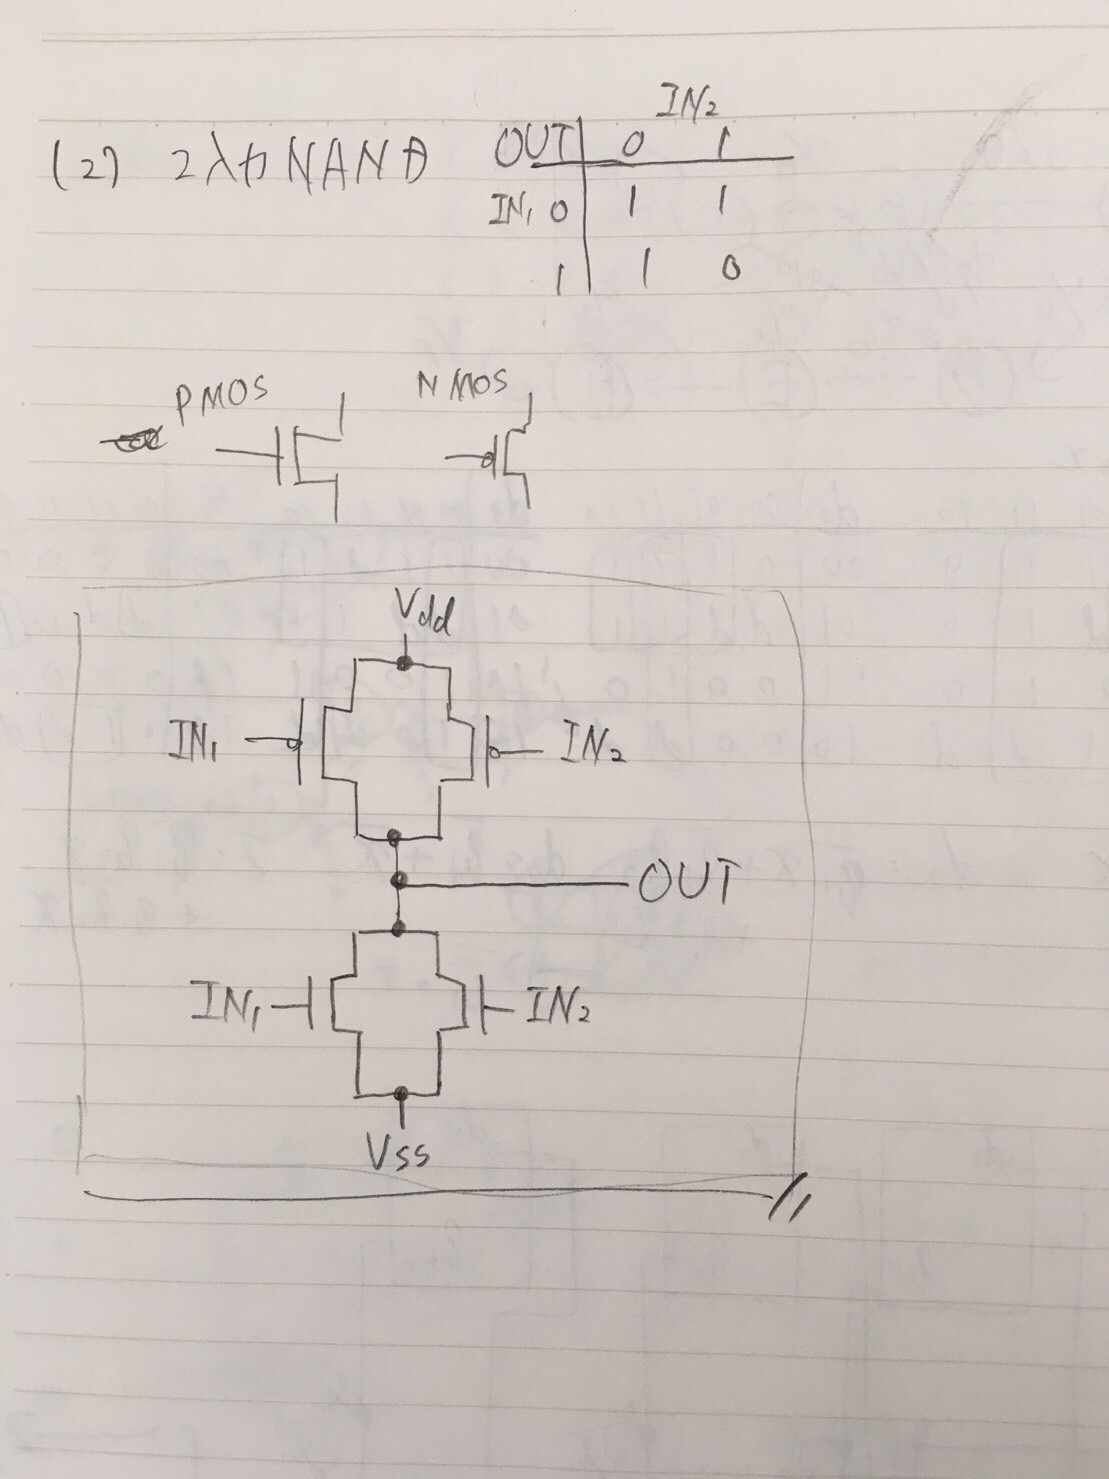 (2) 2入力NAND
IN₂
OUT 0 1
IN₁ 0 1 1
1 1 0
PMOS NMOS
Vdd
IN₁ IN₂
OUT
IN₁ IN₂
Vss